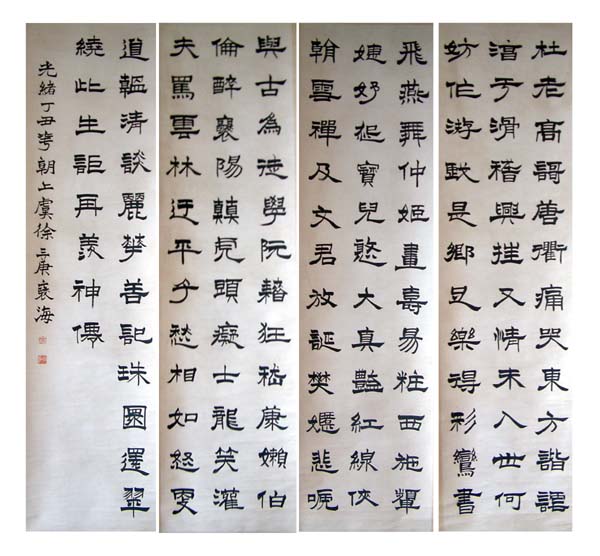 杜老高謌唐衢痛哭東方諧謔
淳于滑稽興往又情未入世何
妨作游戲是鄉且樂得彩鸞書
飛燕舞仲姬畫壽昜粧西施顰
婕妤怨寶兒憨太真豔紅線俠
朝雲禪及文君放誕樊嬺悲呢
與古為徒學阮籍狂嵇康嬾伯
倫醉襄陽顛虎頭癡士龍笑灌
夫罵雲林迂平子愁相如慢更
道韞清談麗華善記珠圓還翠
繞此生詎再羨神僊
光緒丁丑華朝上虞徐三庚褎海